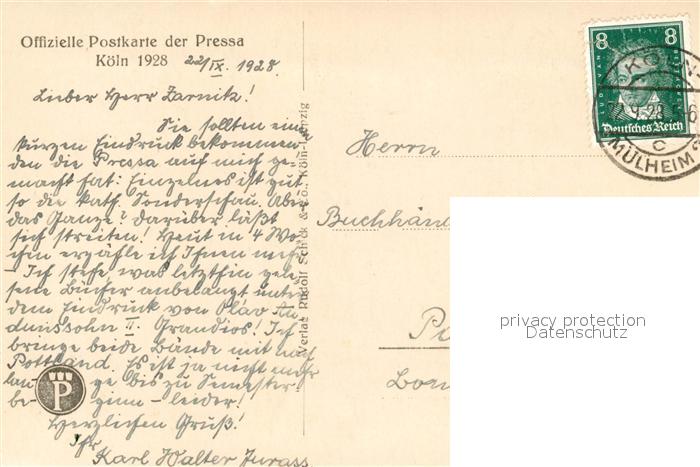 Offizielle Postkarte der Pressa
Köln 1928 22/IX. 1928.
Lieber Herr Zarnitz!
Sie sollten eine
kurzen Eindruck bekommen
den die Pressa auf mich ge-
macht hat: Einzelnes ist gut
so die kath. Sonderschau. Aber
das Ganze? Darüber läßt
sich streiten! Heut in 4 Wo-
chen erzähle ich Ihnen mehr
- Ich stehe was letzthin gele-
sene Bücher anbelangt unter
dem Eindruck von Olav Au-
dunssohn II: Grandios! Ich
bringe beide Bände mit nach
Pottland. Es ist ja nicht mehr
lan- ge bis zu Semester-
be- ginn - leider!
P
Herzlichen Gruß!
Ihr
Karl Walter
Verlag Rudolf Schick & Co., Köln-Leipzig
8 8
Deutsches Reich
KÖLN
MÜLHEIM
c
Herrn
Buchhänd
privacy protection
Datenschutz